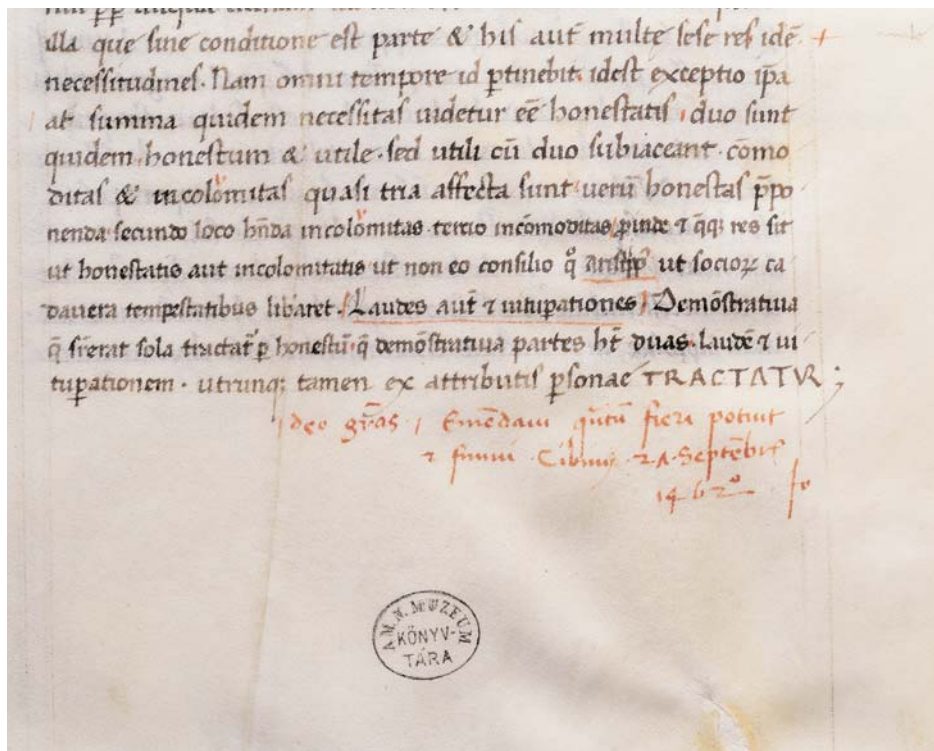 illa que sine conditione est parte & his aut̄ multe sese res idē +
necessitudines. Nam omni tempore id ptinebit. idest exceptio ip̄a
at summa quidem necessitas uidetur eē honestatis / duo sunt
quidem honestum & utile. sed utili cū duo subiaceant. cōmo
ditas & incolomitas quasi tria affecta sunt uerū honestas p̄po
nenda secundo loco hn̄da incolomitas tertio incōmoditas / ꝓinde ⁊ q̄qꝫ res sit
ut honestatis aut incolomitatis ut non eo consilio ut socioꝝ ca
dauera tempestatibus libaret. / Laudes aut̄ ⁊ uitupationes / Demōstratiua
sola tractat̄ honestū q̄ demōstratiua partes hn̄t duas. laudē ⁊ ui
tuꝑationem. utrunqꝫ tamen ex attributis ꝑsonae TRACTATVR ;
/ deo gr̄as / Emēdaui qn̄tū fieri potuit
⁊ finiui Cibinij 21 Septēbris
1462º Jo
A M. N. MUZEUM
KÖNYV-
TÁRA